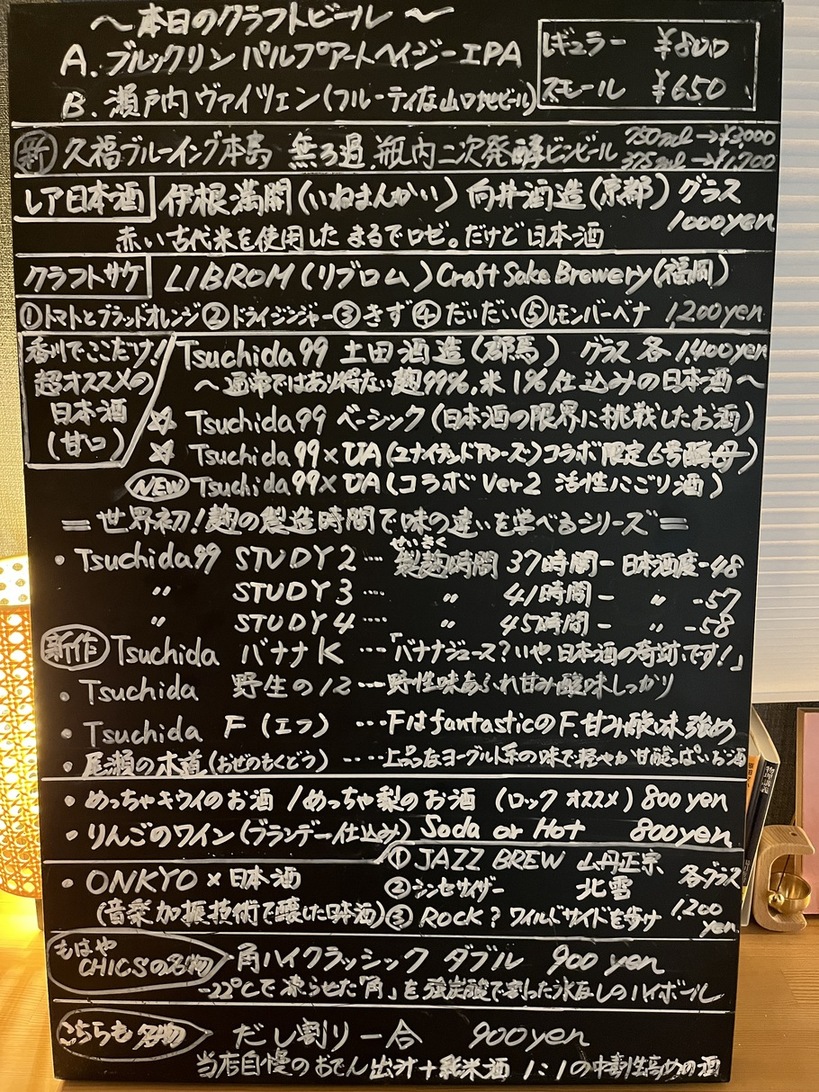 〜本日のクラフトビール〜
A. ブルックリン パルプアートヘイジーIPA レギュラー ¥800
B. 瀬戸内 ヴァイツェン(フルーティな山口地ビール) スモール ¥650
新 久福ブルーイング本島 無ろ過、瓶内二次発酵ビンビール 750ml→¥3,000
375ml→¥1,700
レア日本酒 伊根満開(いねまんかい) 向井酒造(京都) グラス
1000yen
赤い古代米を使用した まるでロゼ。だけど日本酒
クラフトサケ LIBROM(リブロム) Craft Sake Brewery(福岡)
①トマトとブラッドオレンジ ②ドライジンジャー ③きず ④だいだい ⑤レモンバーベナ 1,200yen
香川でここだけ! Tsuchida99 土田酒造(群馬) グラス 各1,400yen
超オススメの 〜通常ではあり得ない麹99%、米1%仕込みの日本酒〜
日本酒 ☆ Tsuchida99 ベーシック(日本酒の限界に挑戦したお酒)
(甘口) ☆ Tsuchida99×UA(ユナイテッドアローズ)コラボ限定6号酵母)
NEW Tsuchida99×UA(コラボVer2 活性にごり酒)
=世界初!麹の製造時間で味の違いを学べるシリーズ=
せいきく
・Tsuchida99 STUDY2 … 製麹時間 37時間ー日本酒度-48
〃 STUDY3 … 〃 41時間ー 〃 -57
〃 STUDY4 … 〃 45時間ー 〃 -58
新作 Tsuchida バナナK …「バナナジュース?いや、日本酒の奇跡です!」
・Tsuchida 野生の12…野性味あふれ甘み酸味しっかり
・Tsuchida F(エフ) …FはfantasticのF、甘み酸味強め
・尾瀬の木道(おぜのもくどう) …上品なヨーグルト系の味で軽やか甘酸っぱいお酒
・めっちゃキウイのお酒/めっちゃ梨のお酒 (ロックオススメ) 800yen
・りんごのワイン(ブランデー仕込み) Soda or Hot 800yen
・ONKYO×日本酒 ① JAZZ BREW 山丹正宗 各グラス
② シンセサイザー 北雪 1,200
(音楽加振技術で醸した日本酒) ③ ROCK? ワイルドサイドを歩け yen
もはや
CHICSの名物 角ハイクラッシック ダブル 900 yen
-22℃で凍らせた「角」を強炭酸で割った氷なしのハイボール
こちらも名物 だし割り一合 900yen
当店自慢のおでん出汁+純米酒 1:1の中毒性高めの酒